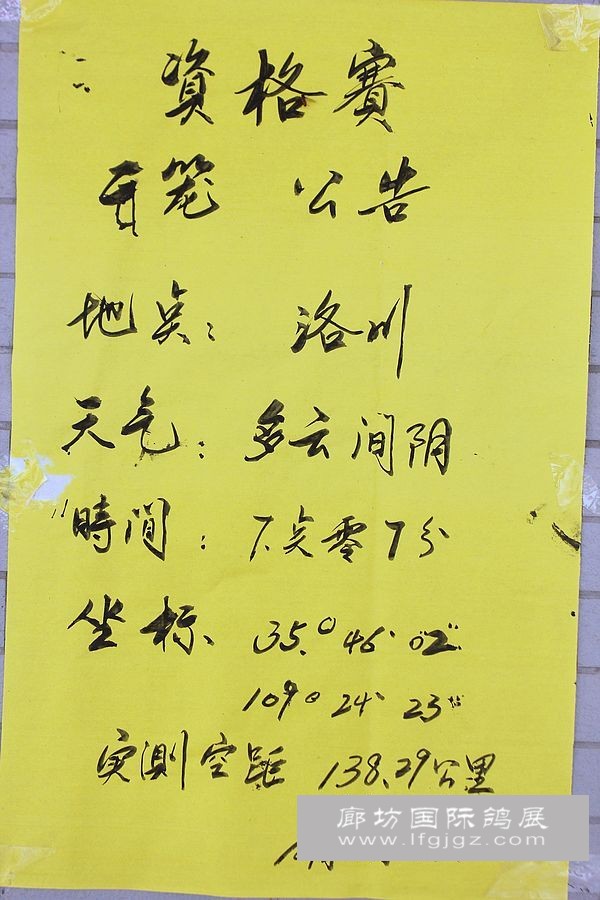 資格賽
开笼 公告
地点：洛川
天气：多云间阴
時间：7点零7分
坐标 35°46'02"
109°24'23"
实測空距 138.29公里
廊坊国际鸽展
www.lfgjgz.com